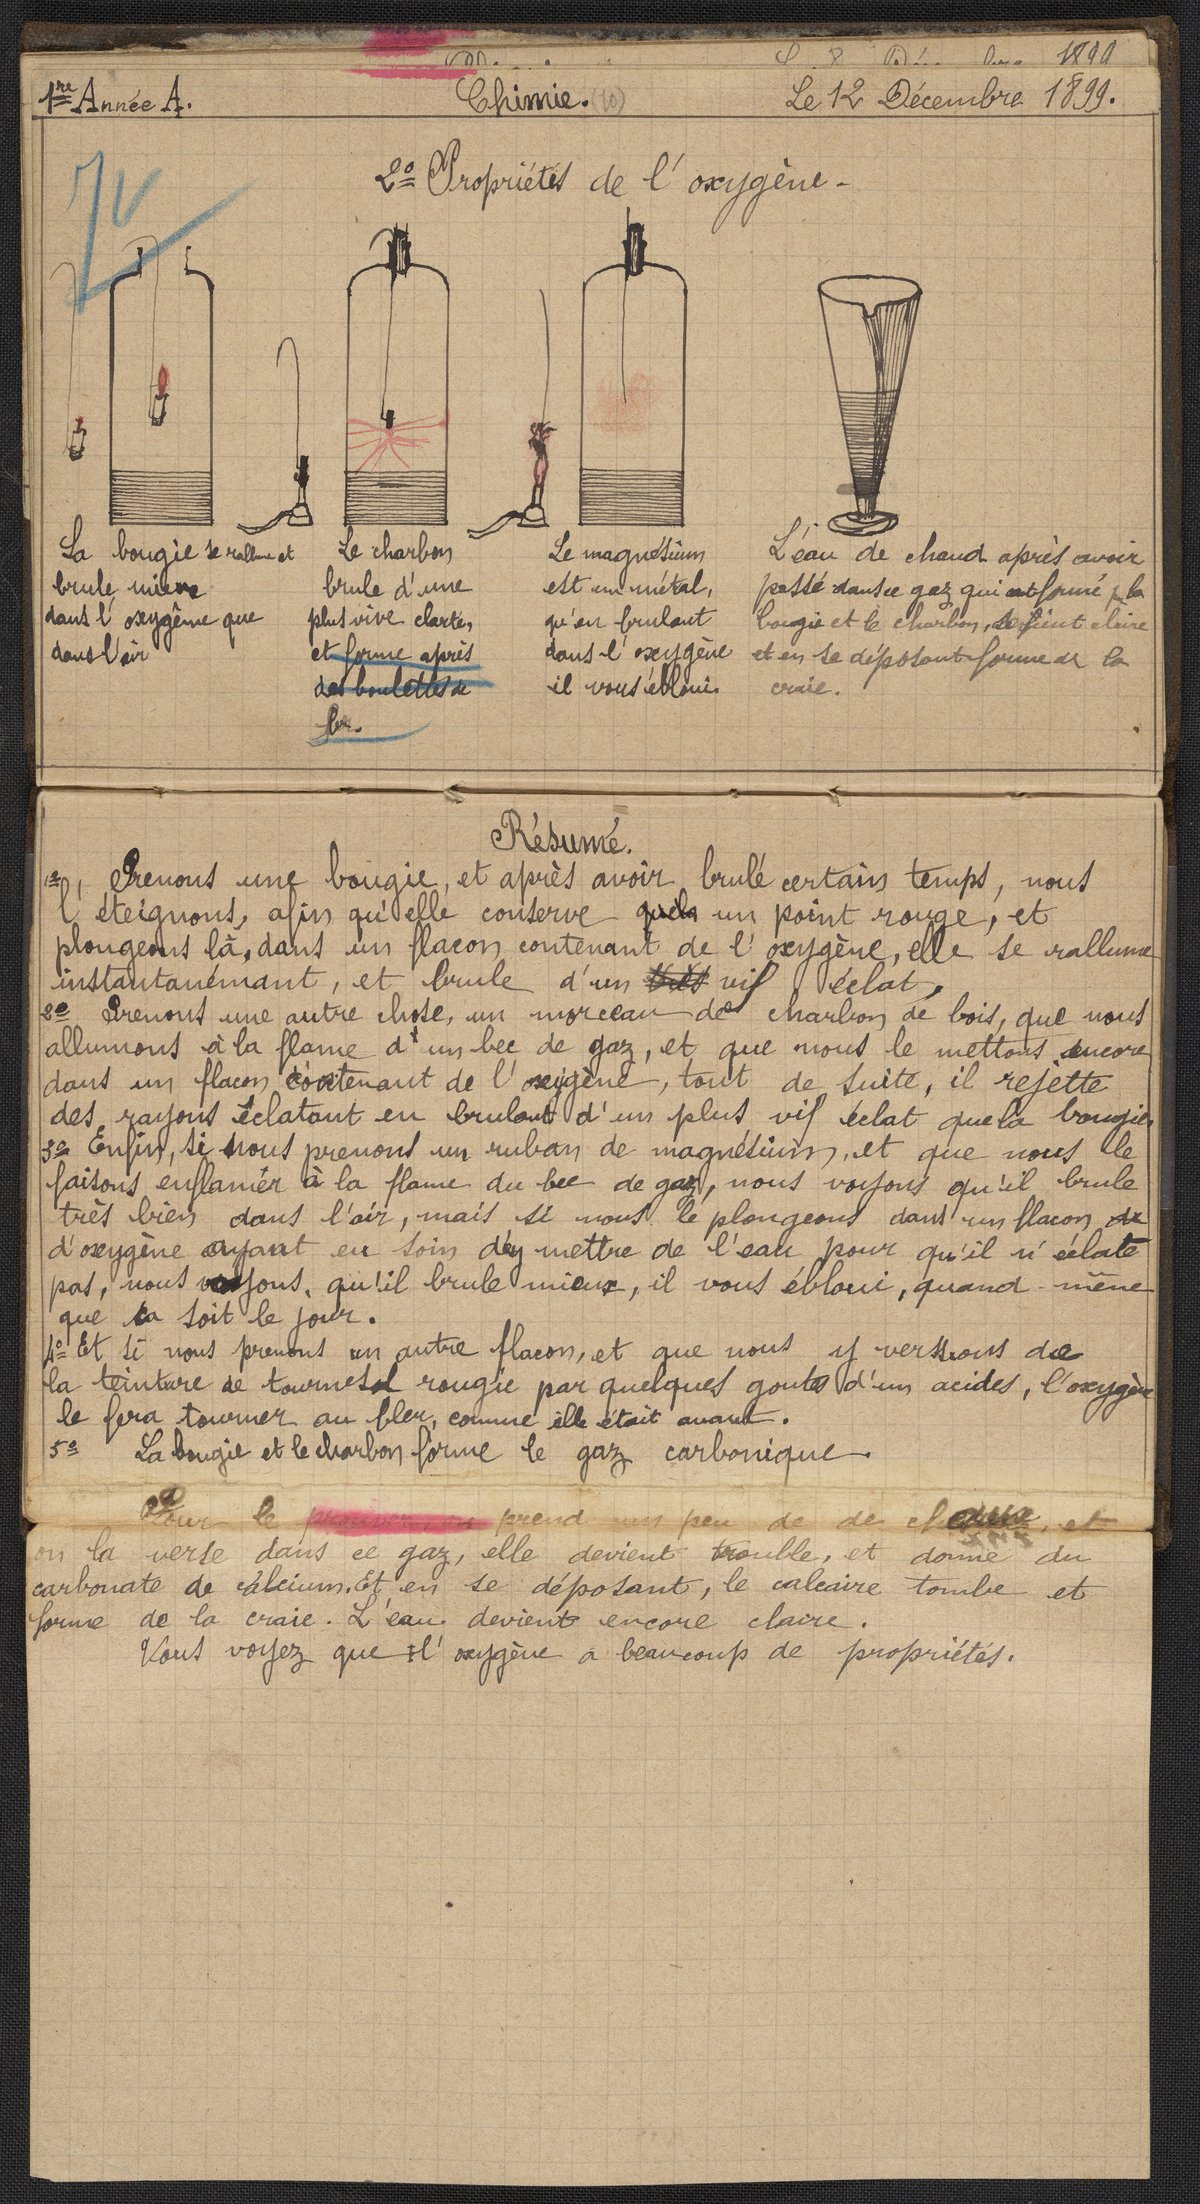 1re Année A. Chimie. (10) Le 12 Décembre 1899.
2o Propriétés de l'oxygène -
La bougie se rallume et
brule mieux
dans l'oxygène que
dans l'air
Le charbon
brule d'une
plus vive clarté,
et forme après
des boulettes de
fer.
Le magnésium
est un métal,
qu'en brulant
dans l'oxygène
il vous éblouie.
L'eau de chaud après avoir
passé dans ce gaz qui ont formé p la
bougie et le charbon, devient claire
et en se déposant forme de la
craie.
Résumé.
1o Prenons une bougie, et après avoir brulé certains temps, nous
l'éteignons, afin qu'elle conserve un point rouge, et
plongeons là, dans un flacon contenant de l'oxygène, elle se rallume
instantanémant, et brule d'un très vif éclat,
2o Prenons une autre chose, un morceau de charbon de bois, que nous
allumons à la flame d'un bec de gaz, et que nous le mettons encore
dans un flacon contenant de l'oxygène, tout de suite, il rejètte
des rayons éclatant en brulant d'un plus vif éclat que la bougie,
3o Enfin, si nous prenons un ruban de magnésium, et que nous le
faisons enflamér à la flame du bec de gaz, nous voyons qu'il brule
très bien dans l'air, mais si nous le plongeons dans un flacon de
d'oxygène ayant eu soin d'y mettre de l'eau pour qu'il n'éclate
pas, nous voyons, qu'il brule mieux, il vous ébloui, quand même
que ca soit le jour.
4o Et si nous prenons un autre flacon, et que nous y verssons de
la teinture de tournesol rougie par quelques gouts d'un acides, l'oxygène
le fera tourner au bleu, comme elle était avant.
5o La bougie et le charbon forme le gaz carbonique.
Pour le prouver, on prend un peu de de chaux, et
on la verse dans ce gaz, elle devient trouble, et donne du
carbonate de calcium. Et en se déposant, le calcaire tombe et
forme de la craie. L'eau devient encore claire.
Vous voyez que l'oxygène a beaucoup de propriétés.